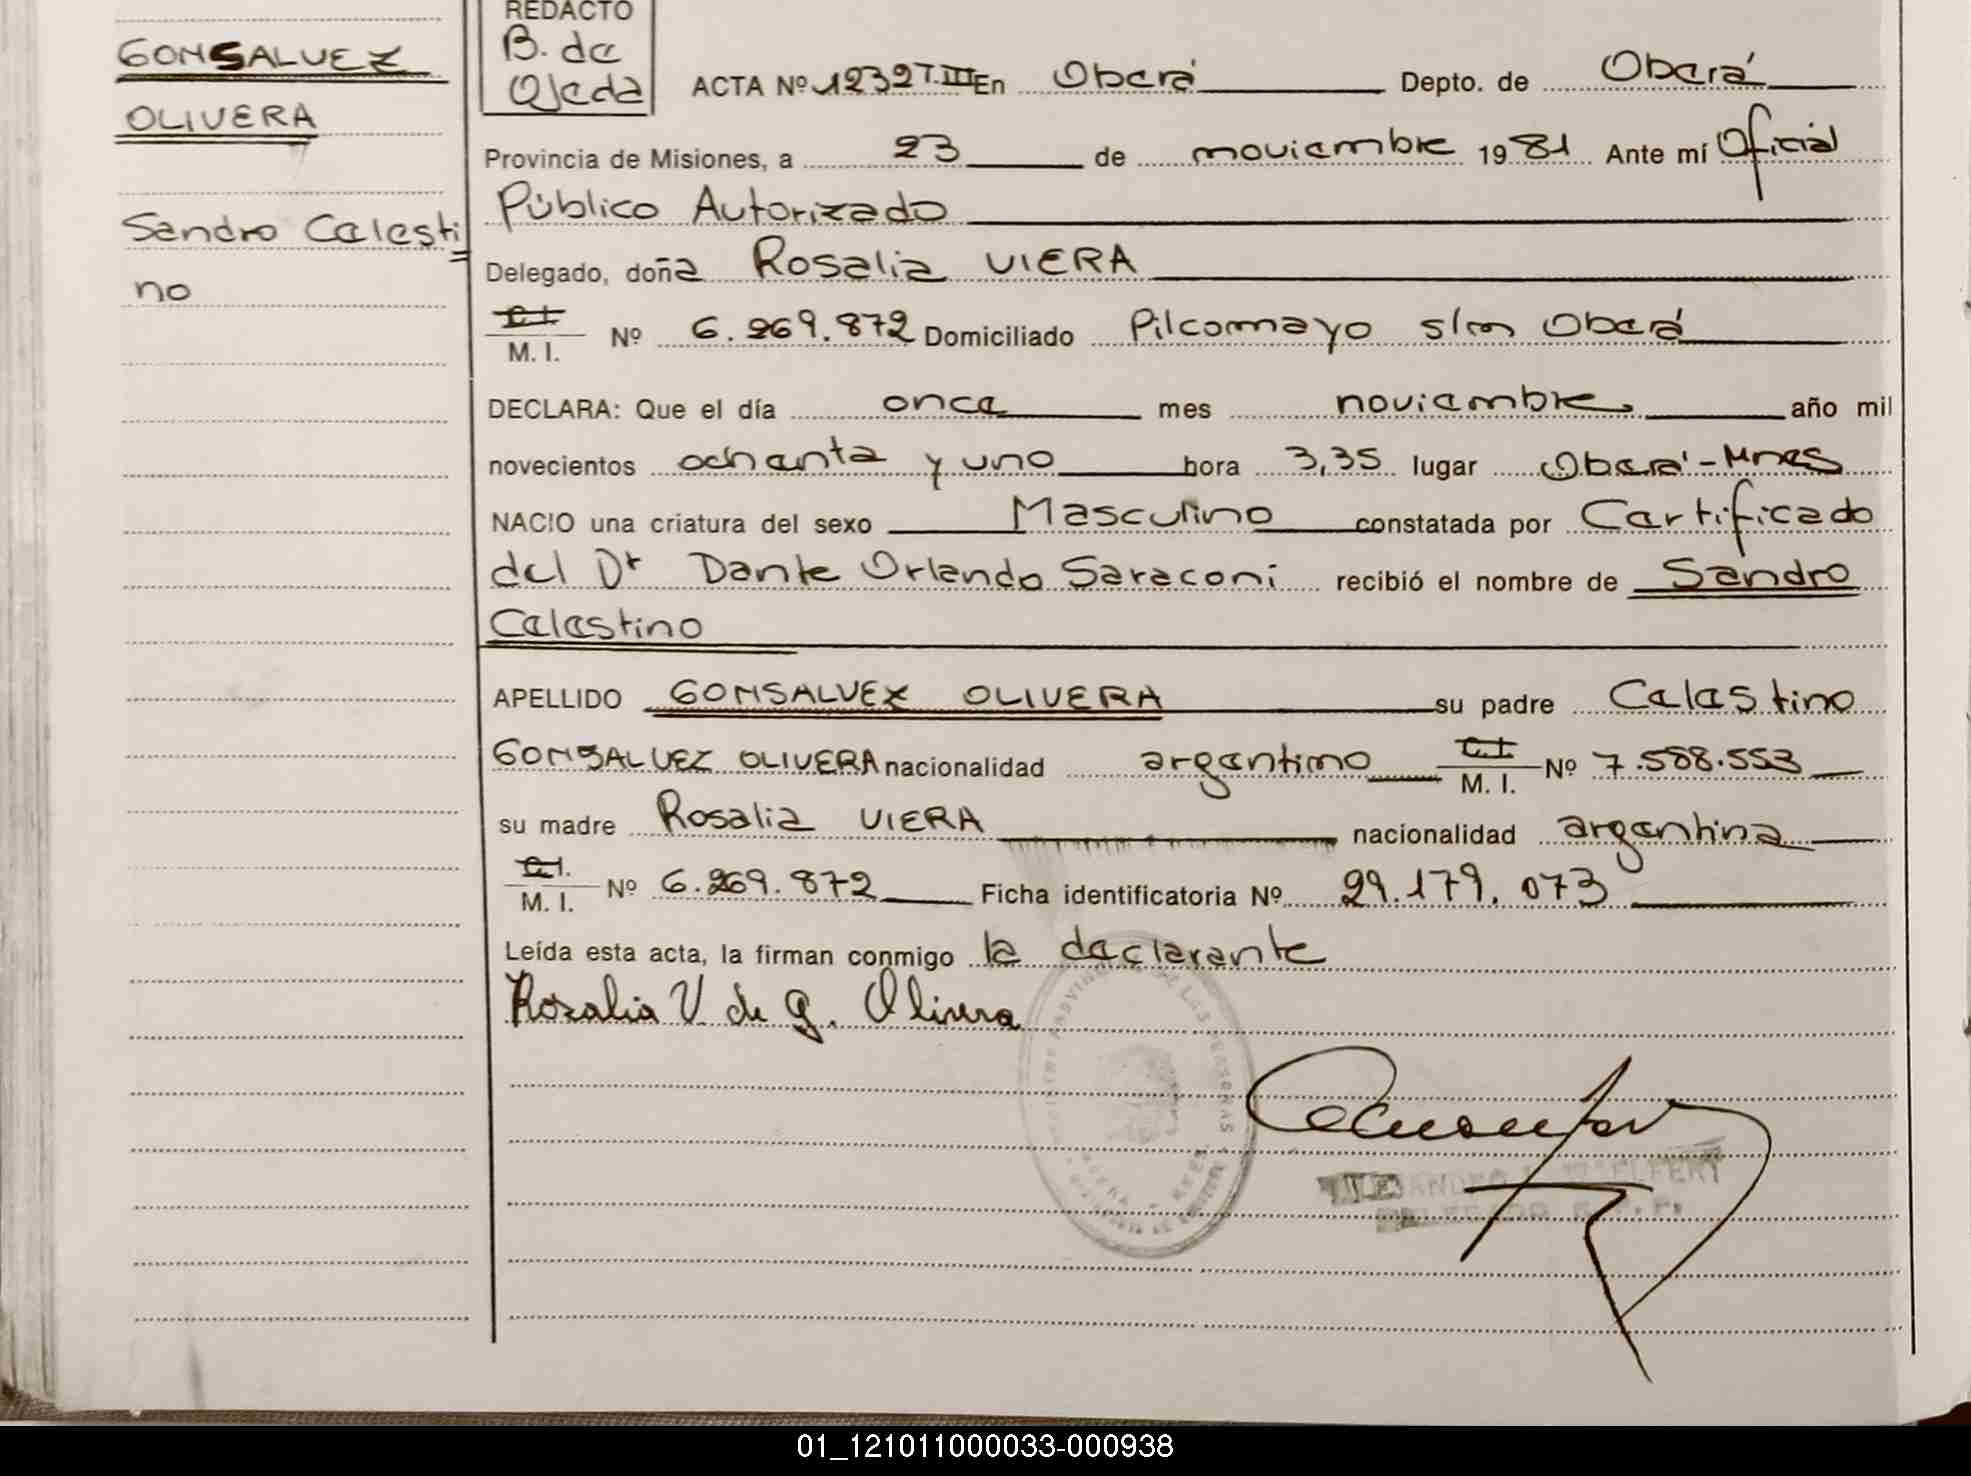 GONSALVEZ
OLIVERA
Sandro Celesti
no
REDACTO
B. de
Ojeda
ACTA Nº 1232 T.III En Oberá Depto. de Oberá
Provincia de Misiones, a 23 de noviembre 1981 Ante mí Oficial
Público Autorizado
Delegado, doña Rosalia VIERA
C.I.
M. I. Nº 6.269.872 Domiciliado Pilcomayo s/n Oberá
DECLARA: Que el día once mes noviembre año mil
novecientos ochenta y uno hora 3,35 lugar Oberá-Mnes
NACIO una criatura del sexo Masculino constatada por Certificado
del Dr Dante Orlando Saraconi recibió el nombre de Sandro
Celestino
APELLIDO GONSALVEZ OLIVERA su padre Celestino
GONSALVEZ OLIVERA nacionalidad argentino C.I. M. I. Nº 7.588.553
su madre Rosalia VIERA nacionalidad argentina
C.I.
M. I. Nº 6.269.872 Ficha identificatoria Nº 29.179.073
Leída esta acta, la firman conmigo la declarante
Rozalia V. de g. Olivera
DE LAS PERSONAS
01_121011000033-000938